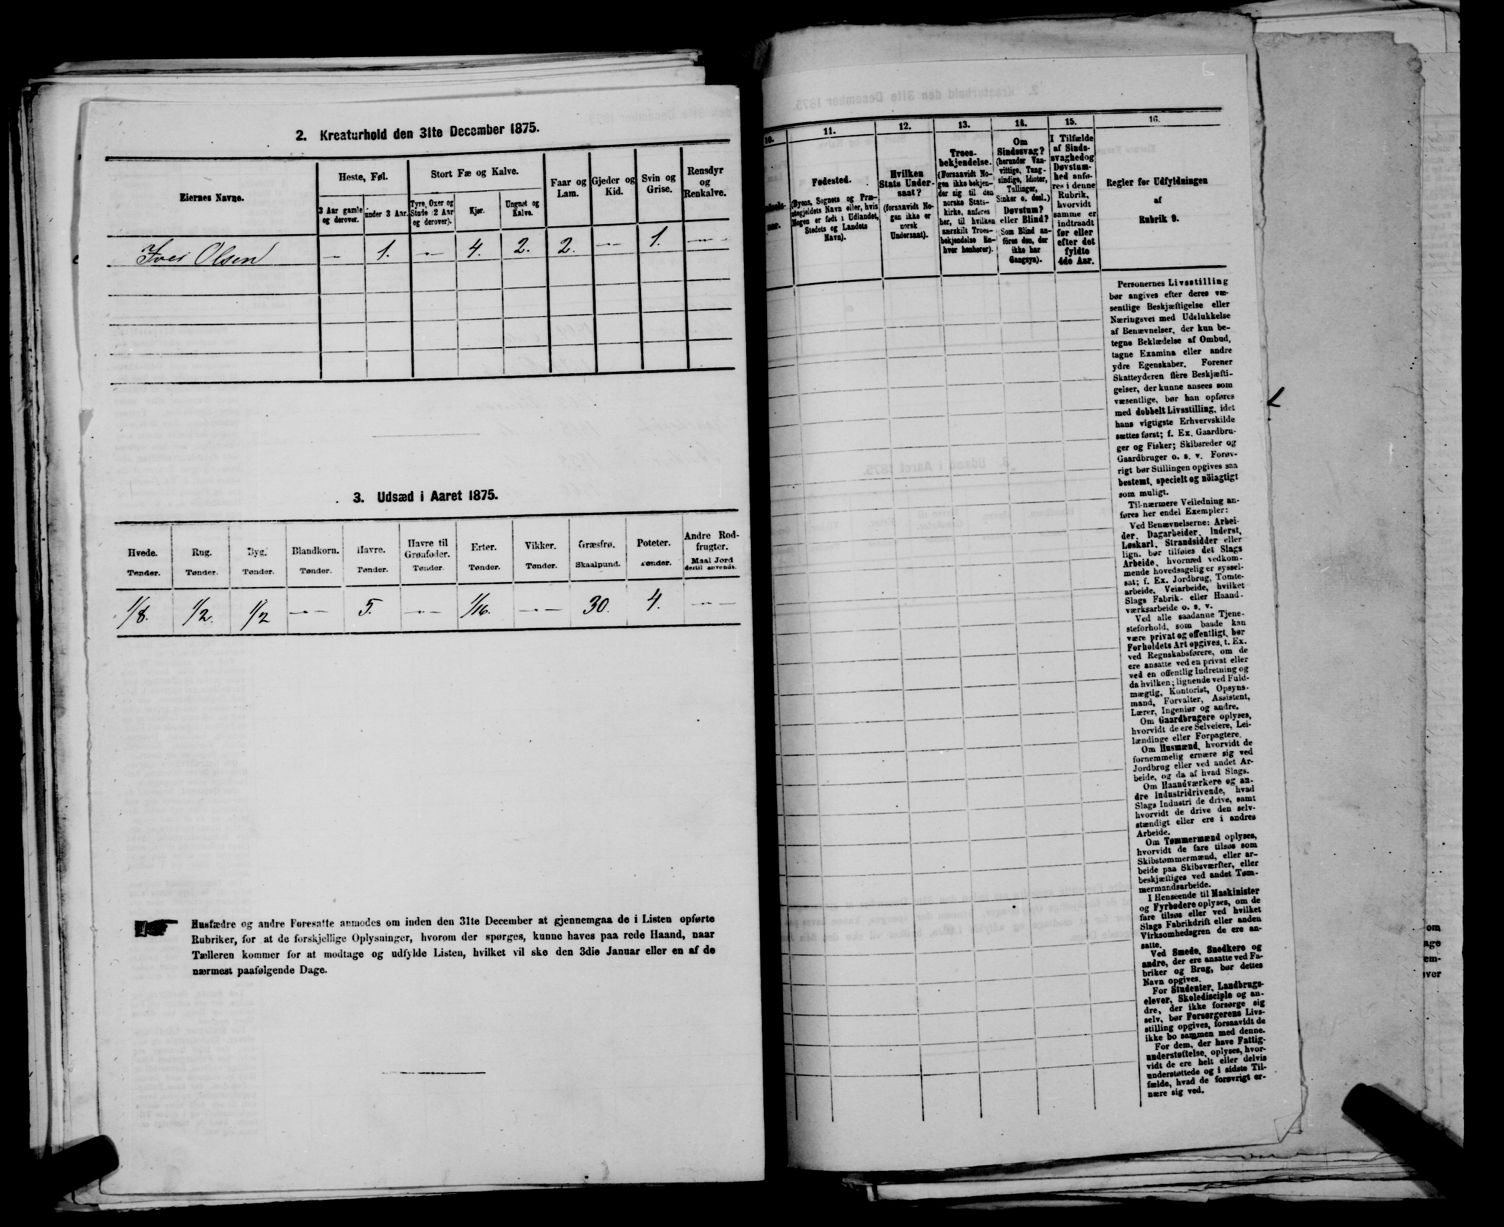 2. Kreaturhold den 31te December 1875.
Eiernes Navne.
Heste, Føl.
Stort Fæ og Kalve.
Faar og Lam.
Gjeder og Kid.
Svin og Grise.
Rensdyr og Renkalve.
3 Aar gamle og derover.
under 3 Aar.
Tyre, Oxer og Stude (2 Aar og derover).
Kjør.
Ungnøt og Kalve.
Iver Olsen – 1. – 4. 2. 2. – 1. –
3. Udsæd i Aaret 1875.
Hvede. Rug. Byg. Blandkorn. Havre. Havre til Grønfoder. Erter. Vikker. Græsfrø. Poteter. Andre Rodfrugter.
Tønder. Tønder. Tønder. Tønder. Tønder. Tønder. Tønder. Tønder. Skaalpund. Tønder. Maal Jord dertil anvendt.
1/8. 1/2. 1/2 – 5. – 1/16. – 30. 4. –
Husfædre og andre Foresatte anmodes om inden den 31te December at gjennemgaa de i Listen opførte
Rubriker, for at de forskjellige Oplysninger, hvorom der spørges, kunne haves paa rede Haand, naar
Tælleren kommer for at modtage og udfylde Listen, hvilket vil ske den 3die Januar eller en af de
nærmest paafølgende Dage.
10.
11.
12.
13.
14.
15.
16.
Fødested.
(Byens, Sognets og Præ-
stegjeldets Navn eller, hvis
Nogen er født i Udlandet,
Stedets og Landets
Navn).
Hvilken
Stats Under-
saat?
(forsaavidt No-
gen ikke er
norsk
Undersaat).
Troes-
bekjendelse.
(Forsaavidt No-
gen ikke bekjen-
der sig til den
norske Stats-
kirke, anføres
her, til hvilken
særskilt Troes-
bekjendelse En-
hver henhører).
Om
Sindssvag?
(herunder Van-
vittige, Tung-
sindige, Idioter,
Tullinger,
Sinker o. desl.)
Døvstum?
eller Blind?
Som Blind an-
føres den, der
ikke har
Gangsyn).
I Tilfælde
af Sinds-
svaghed og
Døvstum-
hed anfø-
res i denne
Rubrik,
hvorvidt
samme er
indtraadt
før eller
efter det
fyldte
4de Aar.
Regler for Udfyldningen
af
Rubrik 9.
Personernes Livsstilling
bør angives efter deres væ-
sentlige Beskjæftigelse eller
Næringsvei med Udelukkelse
af Benævnelser, der kun be-
tegne Beklædelse af Ombud,
tagne Examina eller andre
ydre Egenskaber. Forener
Skatteyderen flere Beskjæfti-
gelser, der kunne ansees som
væsentlige, bør han opføres
med dobbelt Livsstilling, idet
hans vigtigste Erhvervskilde
sættes først; f. Ex. Gaardbru-
ger og Fisker; Skibsreder og
Gaardbruger o. s. v. Forøv-
rigt bør Stillingen opgives saa
bestemt, specielt og nøiagtigt
som muligt.
Til nærmere Veiledning an-
føres her endel Exempler:
Ved Benævnelserne: Arbei-
der, Dagarbeider, Inderst,
Løskarl, Strandsidder eller
lign. bør tilføies det Slags
Arbeide, hvormed vedkom-
mende hovedsagelig er syssel-
sat; f. Ex. Jordbrug, Tomte-
arbeide, Veiarbeide, hvilket
Slags Fabrik- eller Haand-
værksarbeide o. s. v.
Ved alle saadanne Tjene-
steforhold, som baade kan
være privat og offentligt, bør
Forholdets Art opgives, t. Ex.
ved Regnskabsførere, om de
ere ansatte ved en privat eller
ved en offentlig Indretning og
da hvilken; lignende ved Fuld-
mægtig, Kontorist, Opsyns-
mand, Forvalter, Assistent,
Lærer, Ingeniør og andre.
Om Gaardbrugere oplyses,
hvorvidt de ere Selveiere, Lei-
lændinge eller Forpagtere.
Om Husmænd, hvorvidt de
fornemmelig ernære sig ved
Jordbrug eller ved andet Ar-
beide, og da af hvad Slags.
Om Haandværkere og an-
dre Industridrivende, hvad
Slags Industri de drive, samt
hvorvidt de drive den selv-
stændigt eller ere i andres
Arbeide.
Om Tømmermænd oplyses,
hvorvidt de fare tilsøs som
Skibstømmermænd, eller ar-
beide paa Skibsværfter, eller
beskjæftiges ved andet Tøm-
mermandsarbeide.
I Henseende til Maskinister
og Fyrbødere oplyses, om de
fare tilsøs eller ved hvilket
Slags Fabrikdrift eller anden
Virksomhedsgren de ere an-
satte.
Ved Smede, Snedkere og
andre, der ere ansatte ved Fa-
briker og Brug, bør dettes
Navn opgives.
For Studenter, Landbrugs-
elever, Skoledisciple og an-
dre, der ikke forsørge sig
selv, bør Forsørgerens Livs-
stilling opgives, forsaavidt de
ikke bo sammen med denne.
For dem, der have Fattig-
understøttelse, oplyses, hvor-
vidt de ere helt eller delvis
understøttede og i sidste Til-
fælde, hvad de forøvrigt er-
nære sig ved.